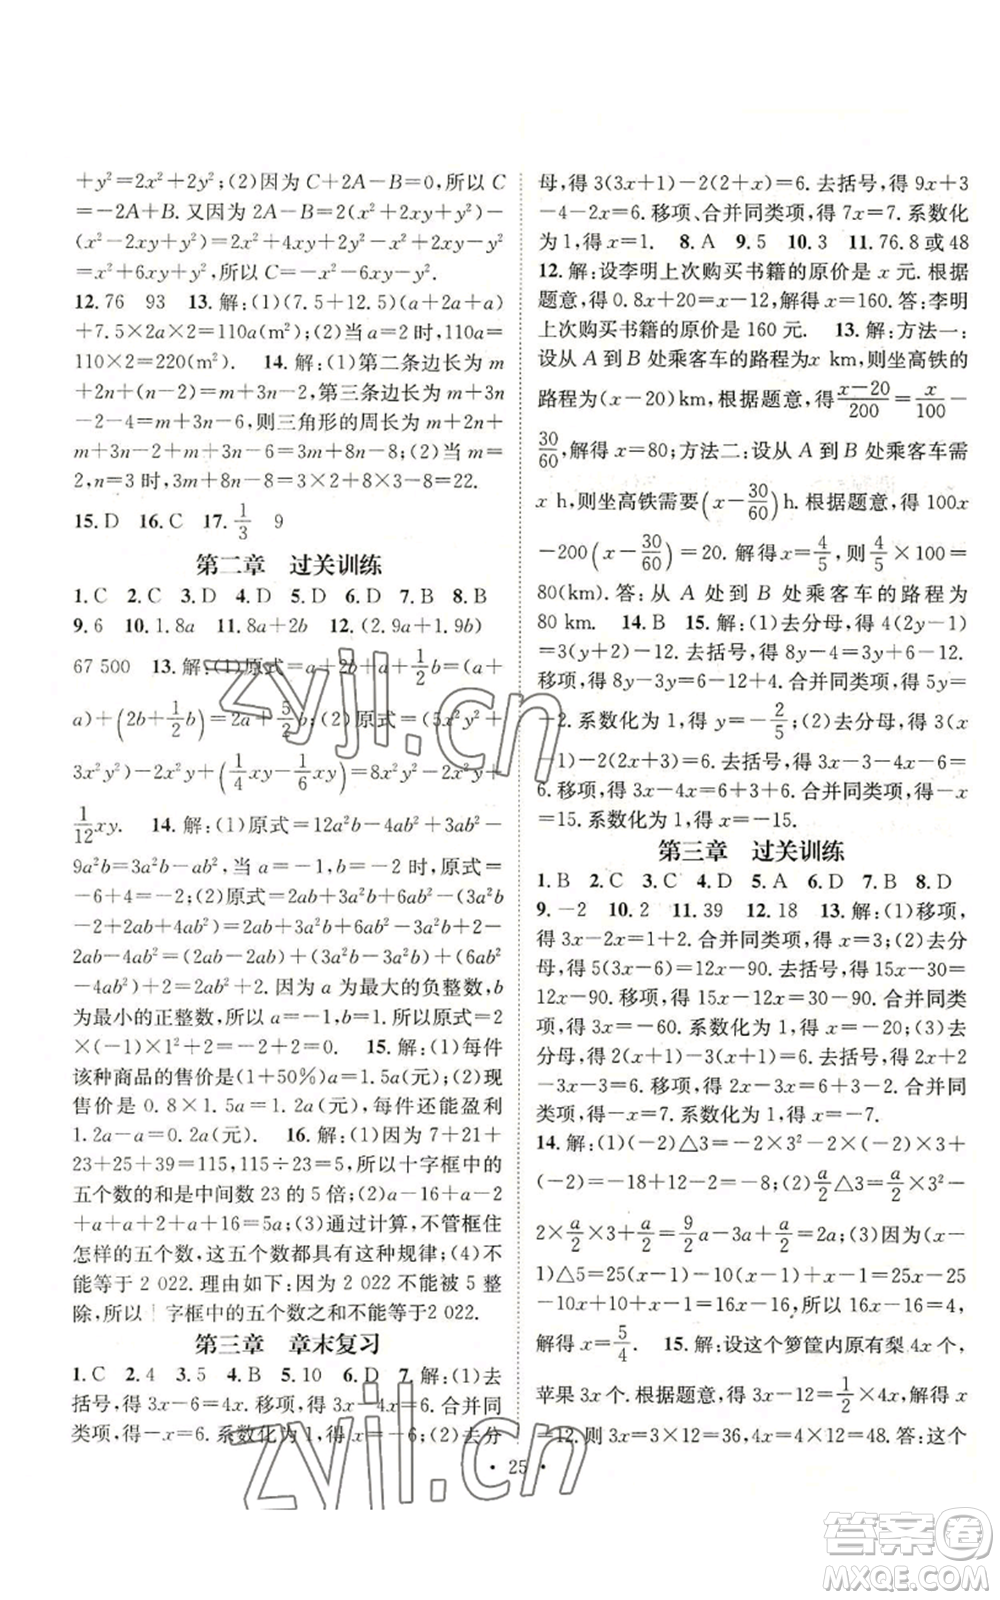 +y²=2x²+2y²;(2)因为 C+2A-B=0,所以 C
=-2A+B. 又因为 2A-B=2(x²+2xy+y²)-
(x²-2xy+y²)=2x²+4xy+2y²-x²+2xy-y²
=x²+6xy+y²,所以 C=-x²-6xy-y².
12. 76 93 13. 解:(1)(7.5+12.5)(a+2a+a)
+7.5×2a×2=110a(m²);(2)当 a=2 时,110a=
110×2=220(m²). 14. 解:(1)第二条边长为 m
+2n+(n-2)=m+3n-2,第三条边长为m+3n
-2-4=m+3n-6,则三角形的周长为 m+2n+
m+3n-2+m+3n-6=3m+8n-8;(2)当 m=
2,n=3时,3m+8n-8=3×2+8×3-8=22.
15. D 16. C 17. 1/3 9
第二章 过关训练
1. C 2. C 3. D 4. D 5. D 6. D 7. B 8. B
9. 6 10. 1.8a 11. 8a+2b 12. (2.9a+1.9b)
67 500 13. 解:(1)原式=a+2b+a+1/2b=(a+
a)+(2b+1/2b)=2a+5/2b;(2)原式=(5x²y²+
3x²y²)-2x²y+(1/4xy-1/6xy)=8x²y²-2x²y+
1/12xy. 14. 解:(1)原式=12a²b-4ab²+ab²-
9a²b=3a²b-3ab²,当 a=1,b=-2 时,原式=
-6+4=-2;(2)原式=2ab+3a²b+2-(3a²b
-2ab+4ab²)=2ab+3a²b+2-3a²b+
2ab-4ab²=(2ab+2ab)+(3a²b-3a²b
-4ab²)+2=4ab-4ab²+2. 因为 a 为最大的负整数,b
为最小的正整数,所以 a=-1,b=1. 所以原式=2
×(-1)×1²+2=-2+2=0. 15. 解:(1)每件
该种商品的售价是(1+50%)a=1.5a(元);(2)现
售价是 0.8×1.5a=1.2a(元),每件还能盈利
1.2a-a=0.2a(元). 16. 解:(1)因为 7+21+
23+25+39=115,115÷23=5,所以十字框中的
五个数的和是中间数 23 的 5 倍;(2)a-16+a-2
+a+a+2+a+16=5a;(3)通过计算,不管框住
怎样的五个数,这五个数都具有这种规律;(4)不
能等于 2 022. 理由如下:因为 2 022 不能被 5 整
除,所以 字框中的五个数之和不能等于2 022.
第三章 章末复习
1. C 2. 4 3. 5 4. B 5. 10 6. D 7. 解:(1)去
括号,得 3x-6=4x. 移项,得 3x-4x=6. 合并同
类项,得-x=6. 系数化为 1,得 x=-6;(2)去分
母,得 3(3x+1)-2(2+x)=6. 去括号,得 9x+3
-4-2x=6. 移项、合并同类项,得 7x=7. 系数化
为 1,得 x=1. 8. A 9. 5 10. 3 11. 76.8 或 48
12. 解:设李明上次购买书籍的原价是 x 元. 根据
题意,得 0.8x+20=x-12,解得 x=160. 答:李明
上次购买书籍的原价是 160 元. 13. 解:方法一:
设从 A 到 B 处乘客车的路程为x km,则坐高铁的
路程为(x-20)km,根据题意,得(x-20)/200=x/100-
30/60,解得 x=80;方法二:设从 A 到 B 处乘客车需
x h,则坐高铁需要(x-30/60)h. 根据题意,得 100x
-200(x-30/60)=20. 解得 x=4/5,则 4/5×100=
80(km). 答:从 A 处到 B 处乘坐客车的路程为
80 km. 14. B 15. 解:(1)去分母,得 4(2y-1)
=3(y+2)-12. 去括号,得 8y-4=3y+6-12.
移项,得 8y-3y=6-12+4. 合并同类项,得 5y=
-2. 系数化为 1,得 y=-2/5;(2)去分母,得 3(x
-1)-2(2x+3)=6. 去括号,得 3x-3-4x-6=
6. 移项,得 3x-4x=6+3+6. 合并同类项,得-x
=15. 系数化为 1,得 x=-15.
第三章 过关训练
1. B 2. C 3. C 4. D 5. A 6. D 7. B 8. D
9. -2 10. 2 11. 39 12. 18 13. 解:(1)移项,
得 3x-2x=1+2. 合并同类项,得 x=3;(2)去分
母,得 5(3x-6)=12x-90. 去括号,得 15x-30=
12x-90. 移项,得 15x-12x=30-90. 合并同类
项,得 3x=-60. 系数化为 1,得 x=-20;(3)去
分母,得 3x-2(2x-1)=6+3. 去括号,得
3x-4x+2=6+3. 移项,得 3x-4x=6+3-2. 合并同
类项,得-x=7. 系数化为 1,得 x=-7.
14. 解:(1)(-2)△3=-2×3²-2×(-2)×3+
(-2)=-18+12-2=-8;(2)a/2△3=a/2×3²-
2×a/2×3+a/2=9/2a-3a+a/2=2a;(3)因为(x-
1)△5=25(x-1)-10(x-1)+x-1=25x-25
-10x+10+x-1=16x-16,所以 16x-16=4,
解得 x=5/4. 15. 解:设这个箩筐内原有梨 4x 个,
苹果 3x 个. 根据题意,得 3x-12=1/2×4x,解得 x
=12. 则 3x=3×12=36,4x=4×12=48. 答:这个
· 25 ·
zyjl.cn
zyjl.cn
答案圈
MXQE.COM